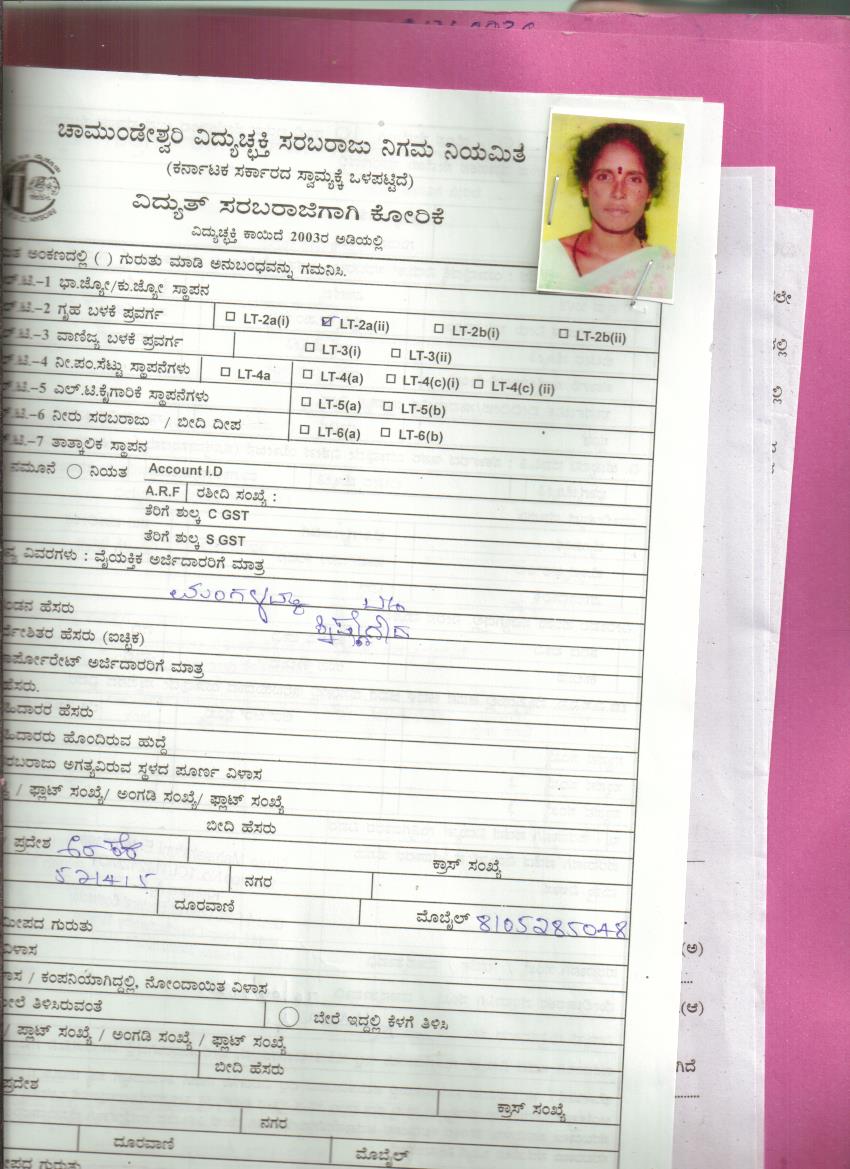 ಚಾಮುಂಡೇಶ್ವರಿ ವಿದ್ಯುಚ್ಛಕ್ತಿ ಸರಬರಾಜು ನಿಗಮ ನಿಯಮಿತ
(ಕರ್ನಾಟಕ ಸರ್ಕಾರದ ಸ್ವಾಮ್ಯಕ್ಕೆ ಒಳಪಟ್ಟಿದೆ)
ವಿದ್ಯುತ್ ಸರಬರಾಜಿಗಾಗಿ ಕೋರಿಕೆ
ವಿದ್ಯುಚ್ಛಕ್ತಿ ಕಾಯಿದೆ 2003ರ ಅಡಿಯಲ್ಲಿ
ಅಂಕಣದಲ್ಲಿ ( ) ಗುರುತು ಮಾಡಿ ಅನುಬಂಧವನ್ನು ಗಮನಿಸಿ.
-1 ಭಾ.ಜ್ಯೋ/ಕು.ಜ್ಯೋ ಸ್ಥಾಪನ
-2 ಗೃಹ ಬಳಕೆ ಪ್ರವರ್ಗ LT-2a(i) LT-2a(ii) LT-2b(i) LT-2b(ii)
-3 ವಾಣಿಜ್ಯ ಬಳಕೆ ಪ್ರವರ್ಗ LT-3(i) LT-3(ii)
-4 ನೀ.ಪಂ.ಸೆಟ್ಟು ಸ್ಥಾಪನೆಗಳು LT-4a LT-4(a) LT-4(c)(i) LT-4(c) (ii)
-5 ಎಲ್.ಟಿ.ಕೈಗಾರಿಕೆ ಸ್ಥಾಪನೆಗಳು LT-5(a) LT-5(b)
-6 ನೀರು ಸರಬರಾಜು / ಬೀದಿ ದೀಪ LT-6(a) LT-6(b)
-7 ತಾತ್ಕಾಲಿಕ ಸ್ಥಾಪನ
ನಮೂನೆ ನಿಯತ Account I.D
A.R.F ರಶೀದಿ ಸಂಖ್ಯೆ :
ತೆರಿಗೆ ಶುಲ್ಕ C GST
ತೆರಿಗೆ ಶುಲ್ಕ S GST
ವಿವರಗಳು : ವೈಯಕ್ತಿಕ ಅರ್ಜಿದಾರರಿಗೆ ಮಾತ್ರ
ಹೆಸರು
ಹೆಸರು (ಐಚ್ಛಿಕ)
ಅರ್ಜಿದಾರರಿಗೆ ಮಾತ್ರ
ಹೆಸರು.
ಹೆಸರು
ಹೊಂದಿರುವ ಹುದ್ದೆ
ಅಗತ್ಯವಿರುವ ಸ್ಥಳದ ಪೂರ್ಣ ವಿಳಾಸ
/ ಫ್ಲಾಟ್ ಸಂಖ್ಯೆ/ ಅಂಗಡಿ ಸಂಖ್ಯೆ/ ಫ್ಲಾಟ್ ಸಂಖ್ಯೆ
ಬೀದಿ ಹೆಸರು
/ ಪ್ರದೇಶ ಕ್ರಾಸ್ ಸಂಖ್ಯೆ
571415 ನಗರ
ದೂರವಾಣಿ ಮೊಬೈಲ್ 8105285048
ಗುರುತು
ವಿಳಾಸ
/ ಕಂಪನಿಯಾಗಿದ್ದಲ್ಲಿ, ನೋಂದಾಯಿತ ವಿಳಾಸ
ತಿಳಿಸಿರುವಂತೆ ಬೇರೆ ಇದ್ದಲ್ಲಿ ಕೆಳಗೆ ತಿಳಿಸಿ
/ ಪ್ಲಾಟ್ ಸಂಖ್ಯೆ / ಅಂಗಡಿ ಸಂಖ್ಯೆ / ಫ್ಲಾಟ್ ಸಂಖ್ಯೆ
ಬೀದಿ ಹೆಸರು
ಪ್ರದೇಶ ಕ್ರಾಸ್ ಸಂಖ್ಯೆ
ನಗರ
ದೂರವಾಣಿ ಮೊಬೈಲ್
ಗುರುತು
(ಅ)
(ಆ)